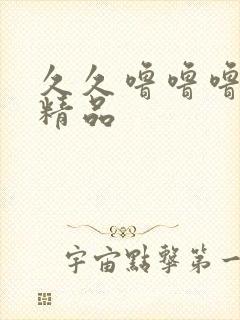 久久噜噜噜
精品
宇宙點擊第一